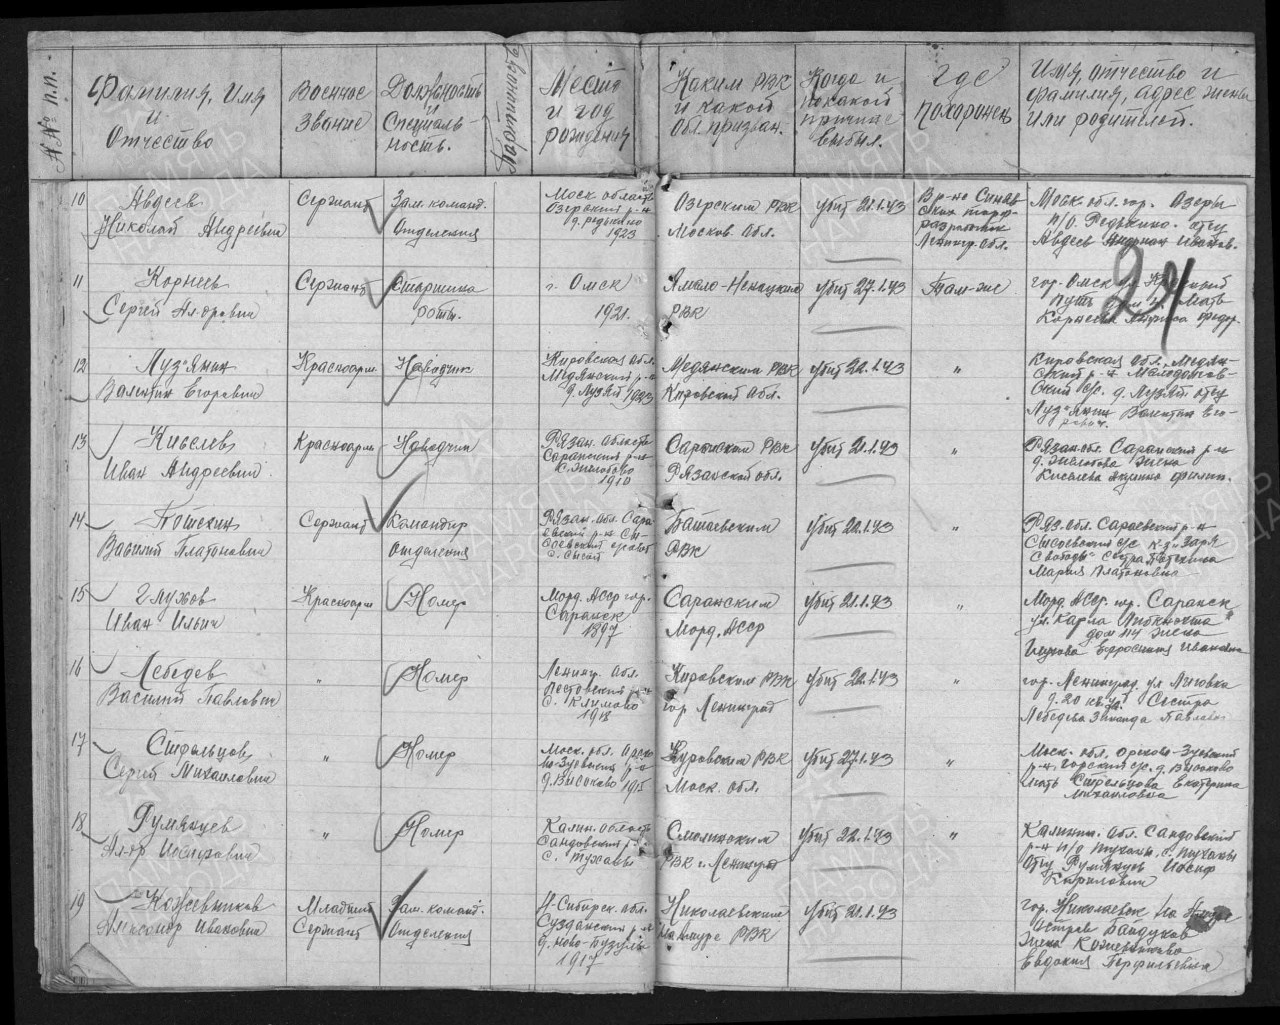 №№ п.п.
Фамилия, Имя
и
Отчество
Военное
звание
Должность
и
Специаль-
ность.
Партийность
Место
и год
рождения
Каким РВК
и какой
обл. призван.
Когда и
по какой
причине
выбыл.
Где
похоронен
Имя, отчество и
фамилия, адрес жены
или родителей.
10
Авдеев
Николай Андреевич
Сержант
Зам. команд.
Отделения
Моск. область
Озерский р-н
д. Редькино
1923
Озерским РВК
Москов. обл.
убит 21.1.43
В р-не Синяв
Ленингр. обл.
Моск. обл. гор. Озеры
п/о Редькино. отец
Авдеев
11
Корнеев
Сергей Ал-дрович
Сержант
Старшина
роты.
г. Омск
1921.
Ямало-Ненецким
РВК
убит 27.1.43
Там-же
гор. Омск
Путь мать
Корнеева Федор.
24
12
Луз"янин
Валентин Егорович
Красноарм.
Наводчик
Кировская обл.
Медянский р-н
д. Лузяны 1923
Медянским РВК
Кировской обл.
убит 22.1.43
"
Кировская обл. Медян-
ский р-н
ский с/с. д. отец
Луз"янин
13
Киселев
Иван Андреевич
Красноарм
Наводчик
Рязан. область
1910
РВК
Рязанской обл.
убит 21.1.43
"
р-н
жена
Киселева
14
Потехин
Василий Платонович
Сержант
Командир
отделения
Рязан. обл. Сара
евский р-н Сы-
с. Сысои
РВК
убит 22.1.43
"
Ряз. обл. Сараевский р-н
Сысоевский с/с к-з "Заря
Свободы" сестра
Мария Платоновна
15
Глухов
Иван Ильич
Красноарм
Номер
Морд. АССР гор.
Саранск
1897
Саранским
Морд. АССР
убит 21.1.43
"
Морд. АССР гор. Саранск
ул. Карла Либкнехта
дом жена
Глухова Ефросиния Ивановна
16
Лебедев
Василий Павлович
"
Номер
Ленингр. обл.
Пестовский р-н
с. Климово
1918
Кировским РВК
гор. Ленинград
убит 22.1.43
"
гор. Ленинград, ул. Лиговка
д. 20 кв. Сестра
Лебедева Зинаида Павловна
17
Стрельцов
Сергей Михайлович
"
Номер
Моск. обл. Орехо-
во-Зуевский р-н
д. Высоково 1915
Куровским РВК
Моск. обл.
убит 27.1.43
"
Моск. обл. Орехово-Зуевский
р-н, Горский с/с. д. Высоково
мать Стрельцова Екатерина
Михайловна
18
Румянцев
Ал-др Иосифович
"
Номер
Калин. область
Сандовский р-н
с. Тухани
Смолнинским
РВК г. Ленинград
убит 22.1.43
"
Калинин. обл. Сандовский
р-н п/о Тухани, с. Тухани
отец Румянцев Иосиф
Кирилович
19
Кожевников
Александр Иванович
Младший
Сержант
Зам. команд.
Отделения
Н-Сибирск. обл.
р-н
1917
Николаевским
на Амуре РВК
убит 21.1.43
гор. Николаевск на Амуре
Остров
жена Кожевникова
Евдокия Перфильевна
ПАМЯТЬ
НАРОДА